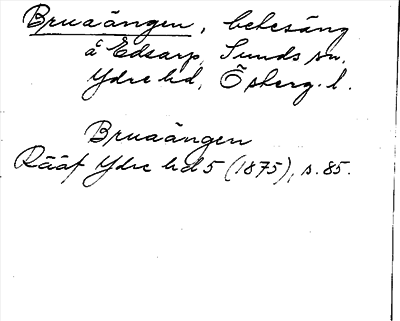 Bruaängen, betesäng
å Edsarp, Sunds sn.
Ydre hd, Österg. l.
Bruaängen
Rääf Ydre hd 5 (1875), s. 85.